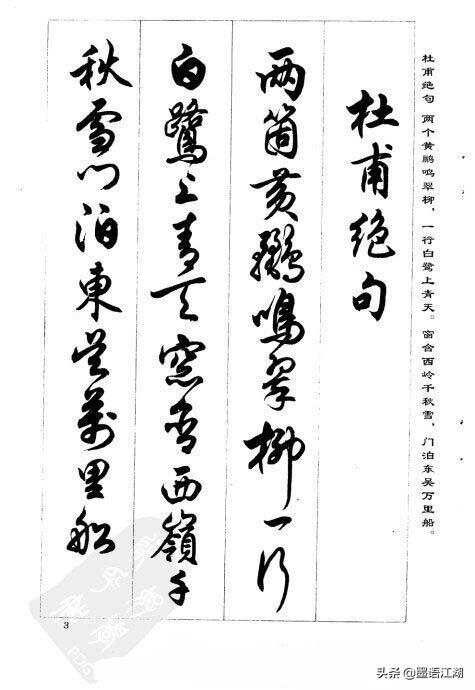 杜甫绝句 两个黄鹂鸣翠柳,一行白鹭上青天。窗含西岭千秋雪,门泊东吴万里船。
杜甫绝句
两箇黄鸝鳴翠柳一行
白鷺上青天窓含西嶺千
秋雪门泊東吴萬里船
3
头条@墨语江湖